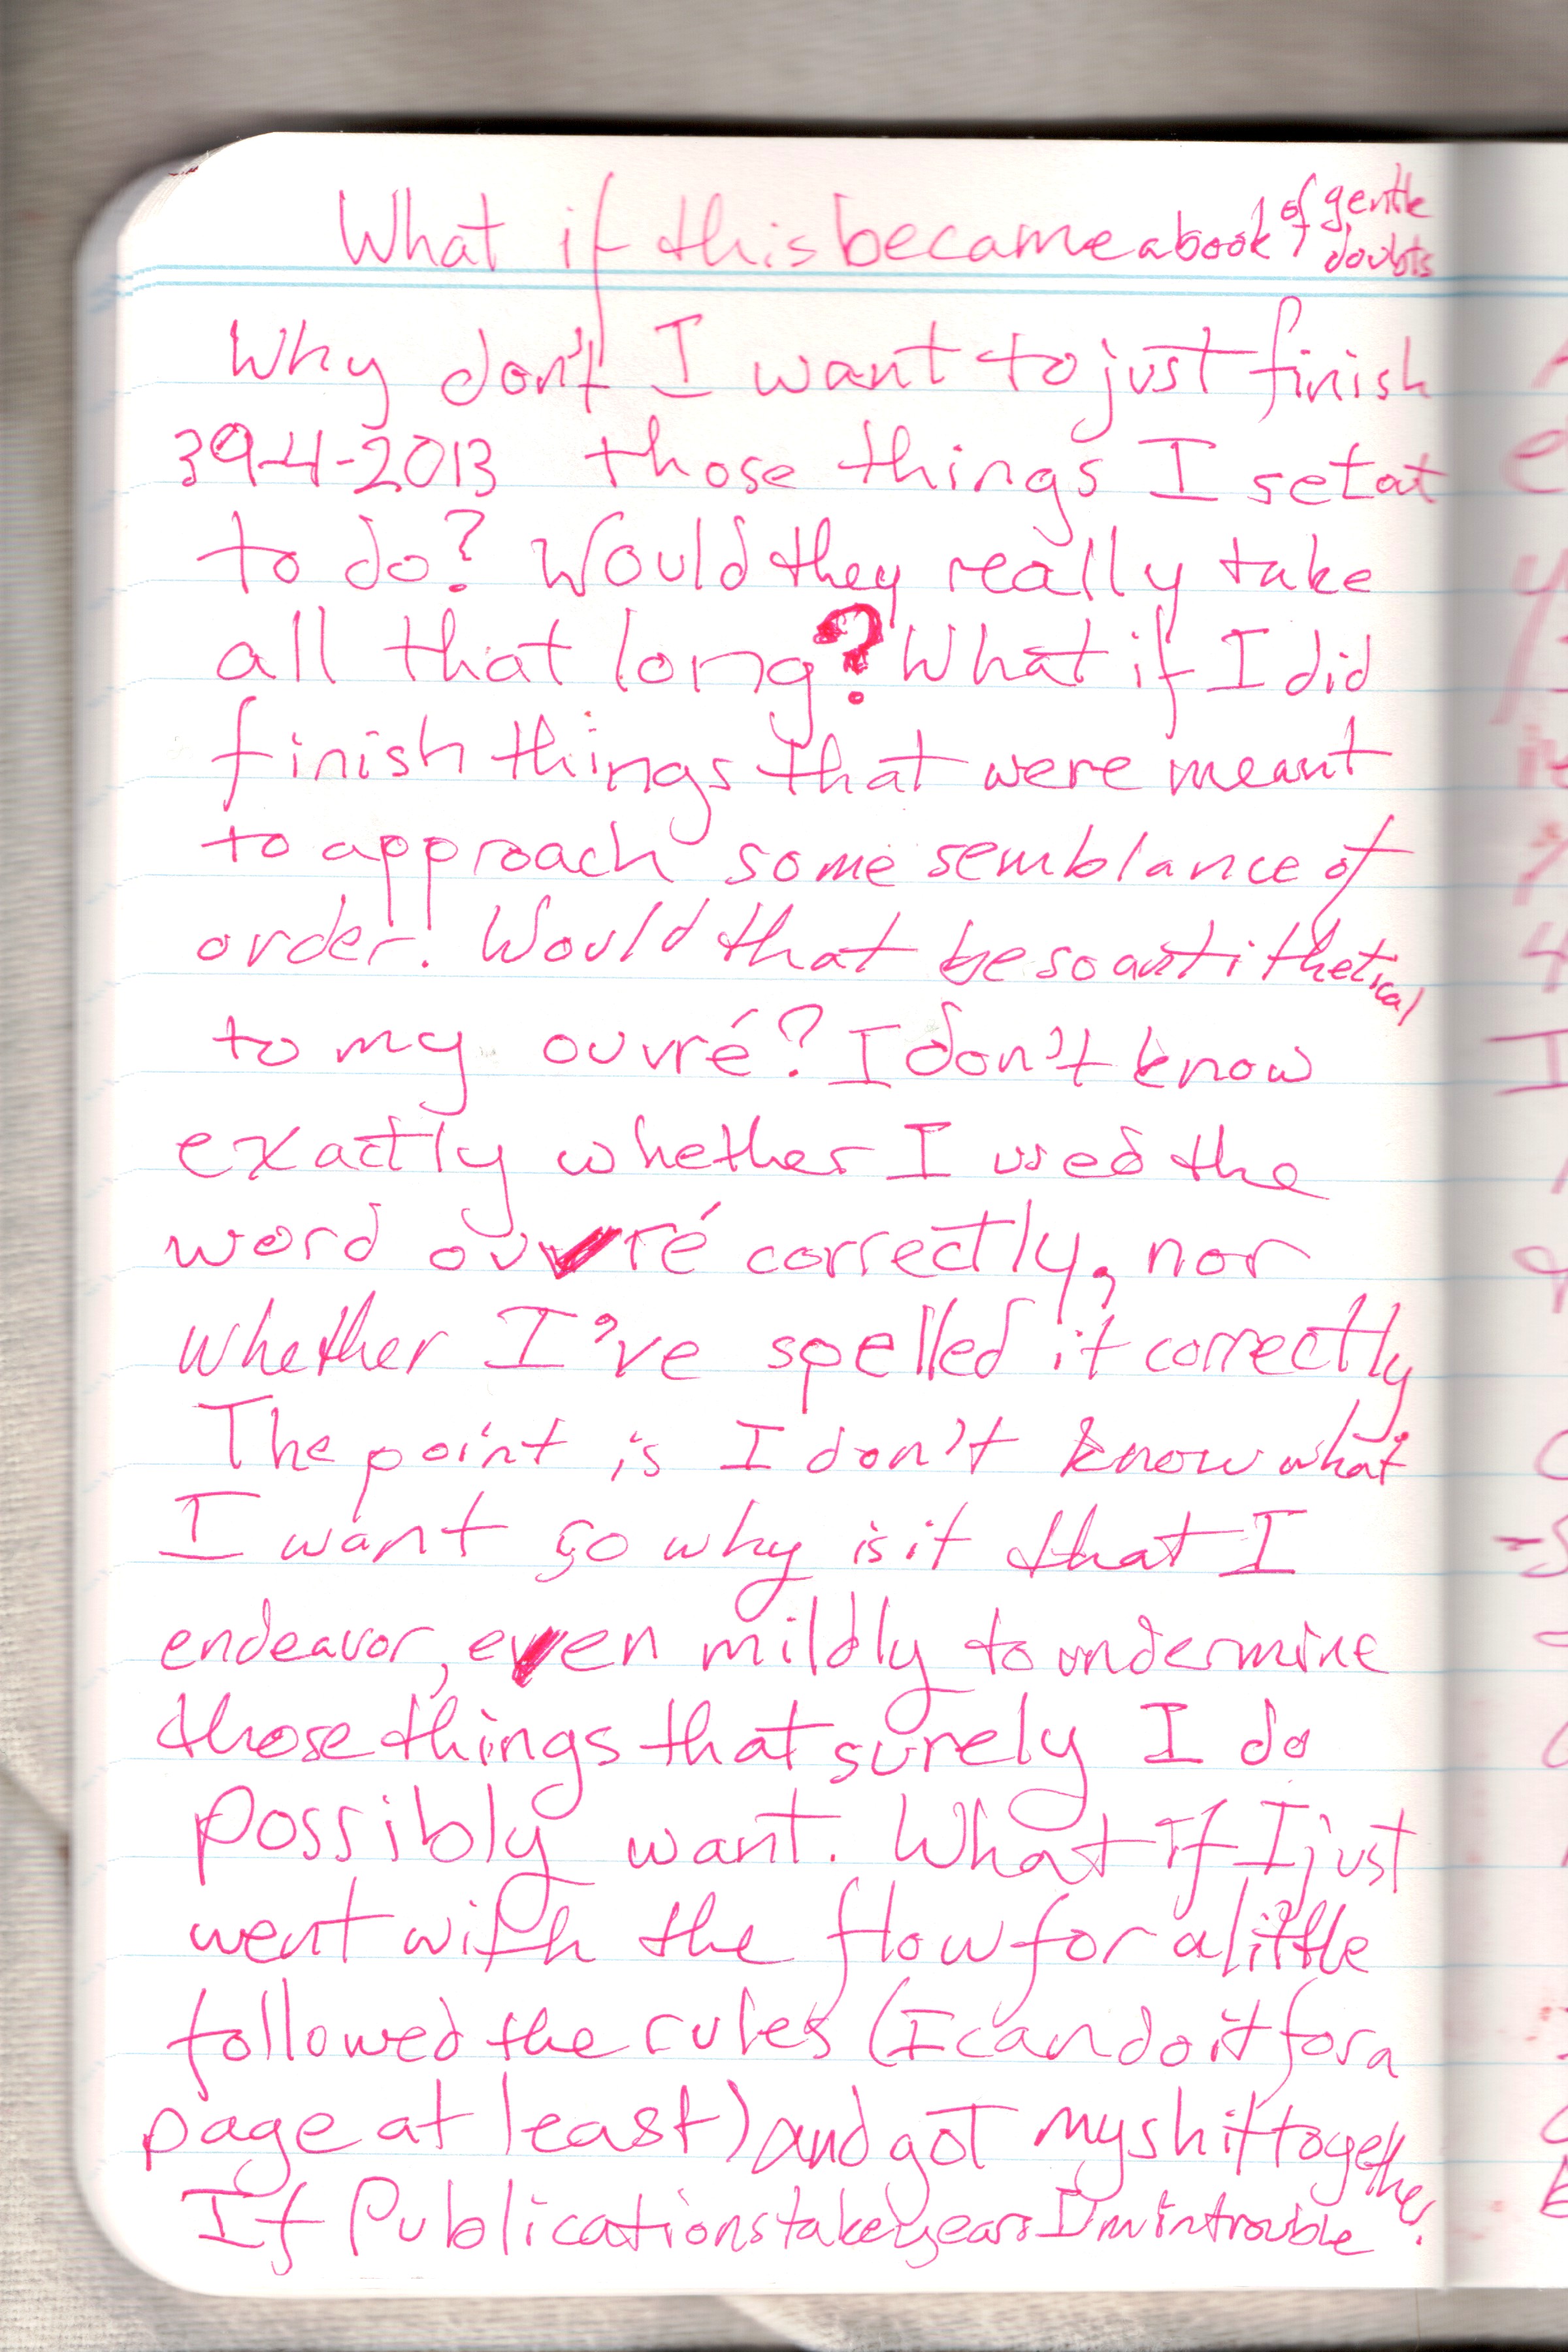 What if this became a book of gentle doubts
Why don't I want to just finish
39-4-2013 those things I set at
to do? Would they really take
all that long? What if I did
finish things that were meant
to approach some semblance of
order! Would that be so antithetical
to my ouvré? I don't know
exactly whether I used the
word ouvré correctly, nor
whether I've spelled it correctly
The point is I don't know what
I want so why is it that I
endeavor, even mildly to undermine
those things that surely I do
possibly want. What if I just
went with the flow for a little
followed the rules (I can do it for a
page at least) and got my shit together.
If Publications take years I'm in trouble